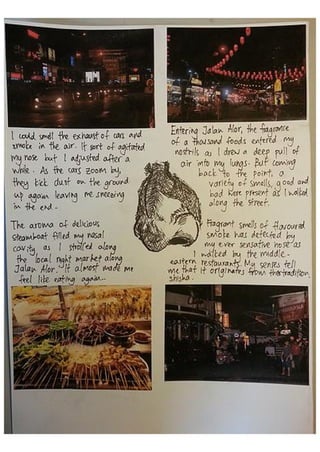 I could smell the exhaust of cars and
smoke in the air. It sort of agitated
my nose but I adjusted after a
while. As the cars zoom by,
they kick dust on the ground
up again leaving me sneezing
in the end.
Entering Jalan Alor, the fragrance
of a thousand foods entered my
nostrils as I drew a deep pull of
air into my lungs. But coming
back to the point, a
variety of smells, good and
bad were present as I walked
along the street.
The aroma of delicious
steamboat filled my nasal
cavity as I strolled along
the local night market along
Jalan Alor. It almost made me
feel like eating again...
Fragrant smells of flavoured
smoke was detected by
my ever sensative nose as
I walked by the middle-
eastern restaurants. My senses tell
me that it originates from the tradition,
shisha.